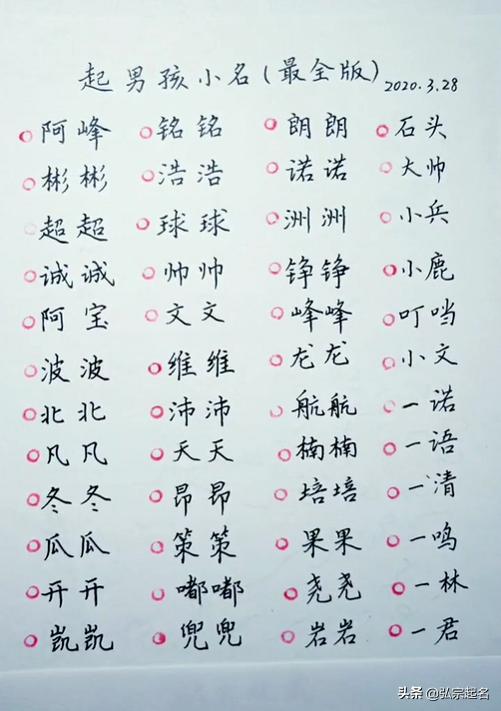 起男孩小名(最全版) 2020.3.28
阿峰 铭铭 朗朗 石头
彬彬 浩浩 诺诺 大帅
超超 球球 洲洲 小兵
诚诚 帅帅 铮铮 小鹿
阿宝 文文 峰峰 叮当
波波 维维 龙龙 小文
北北 沛沛 航航 一诺
凡凡 天天 楠楠 一语
冬冬 昂昂 培培 一清
瓜瓜 策策 果果 一鸣
开开 嘟嘟 尧尧 一林
凯凯 兜兜 岩岩 一君
头条 @弘宗起名